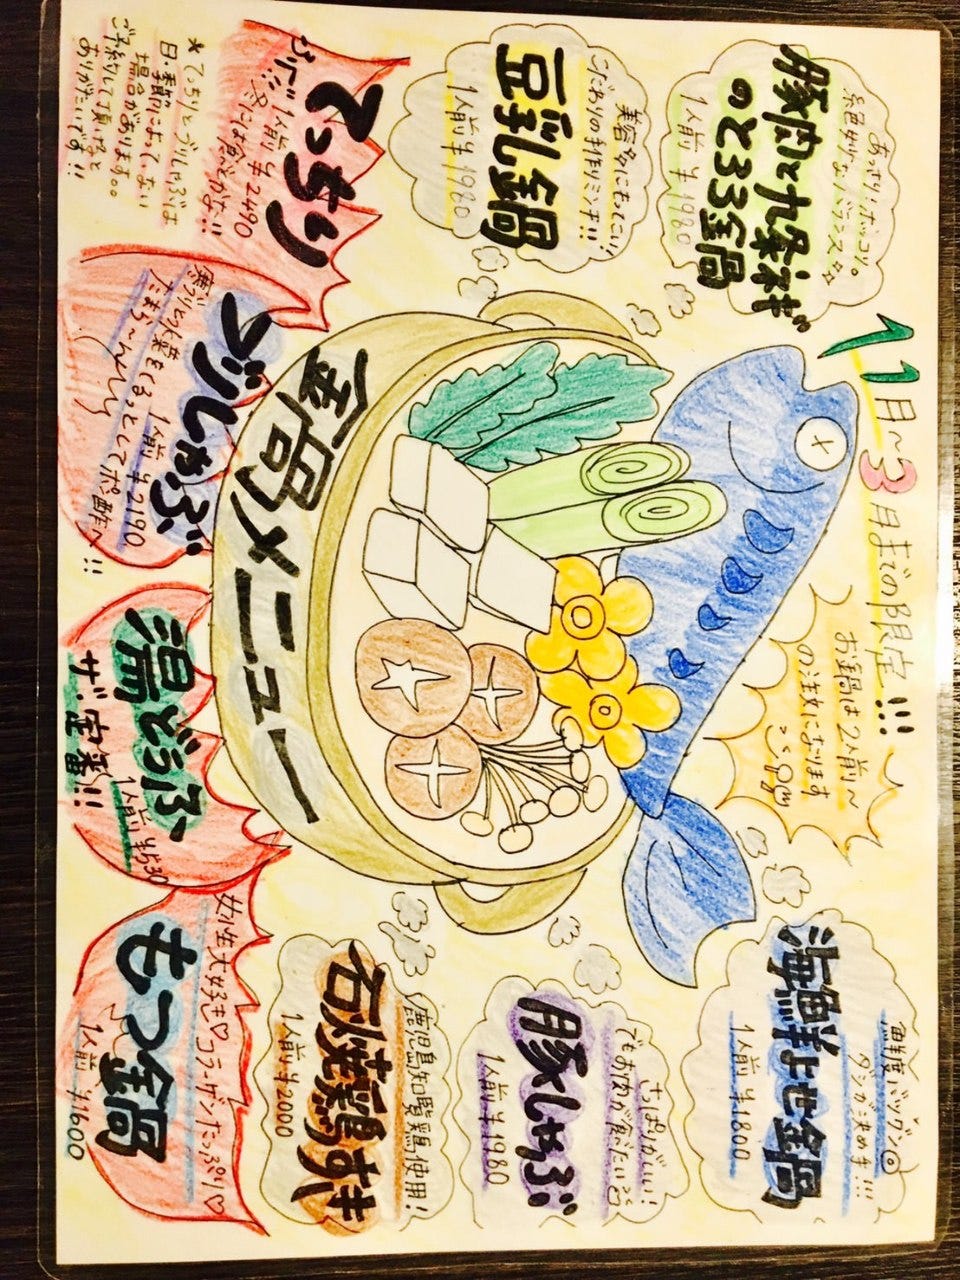 11月〜3月までの限定!!!
お鍋は2人前〜
の注文になります
あっさりポッコリ。
絶妙なバランス☆☆
豚肉と九条ねぎ
のとろろ鍋
1人前 ¥1980
美容系にもってこい
こだわりの手作りミンチ!!!
豆乳鍋
1人前 ¥1980
鮮度バツグン◎
ダシが決め手!!!
海鮮よせ鍋
1人前 ¥1800
さっぱりがいい!
でもお肉が食べたい
豚しゃぶ
1人前 ¥1980
鹿児島知覧鶏使用!
石焼鶏すき
1人前 ¥2000
鍋メニュー
てっちり
1人前 ¥2490
たまには食べとかな!!
＊てっちりとブリしゃぶは
日・季節によってない
場合があります。。
ご予約して頂けると
ありがたいです!!
ブリしゃぶ
1人前 ¥2190
寒ブリと水菜をくるっとしてポン酢へ!!
たまら〜ん
湯どうふ
ザ・定番!!
1人前
女性大好き♡コラーゲンたっぷり♡
もつ鍋
1人前 ¥1600